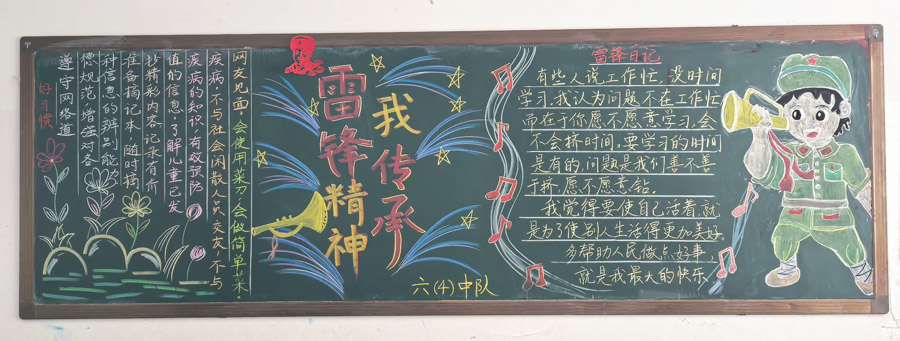 好习惯
遵守网络道
德规范,增强对各
种信息的辨别能力
准备摘记本,随时摘
抄精彩内容记录有价
值的信息,了解儿童已发
疾病的知识,有效预防
疾病,不与社会闲散人员交友,不与
网友见面,会使用菜刀,会做简单菜.
雷锋精神
我传承
六(4)中队
雷锋日记
有些人说工作忙,没时间
学习,我认为问题不在工作忙
而在于你愿不愿意学习,会
不会挤时间,要学习的时间
是有的,问题是我们善不善
于挤,愿不愿意钻。
我觉得要使自己活着,就
是为了使别人生活得更加美好,
多帮助人民做点好事,
就是我最大的快乐